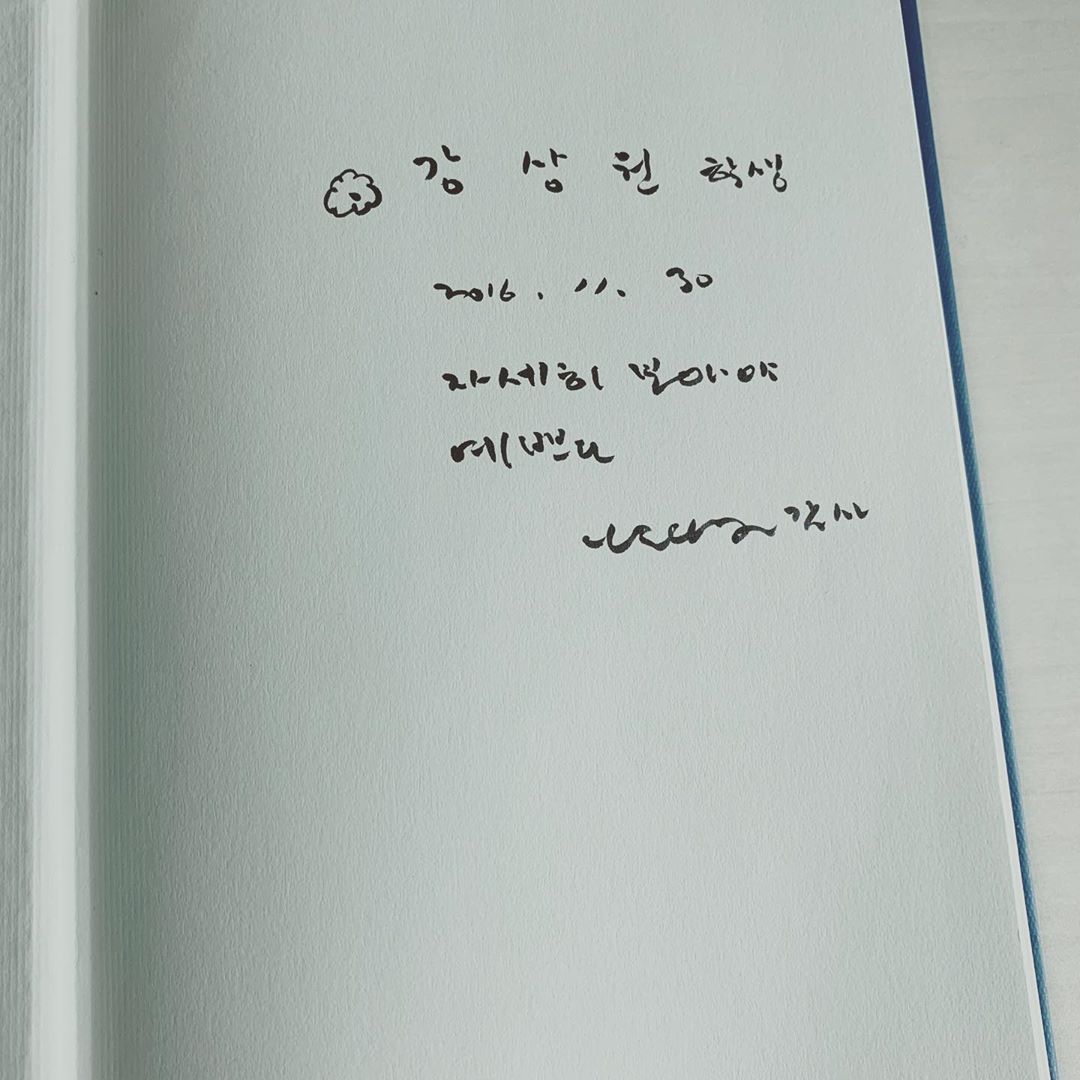 강 상 원 학생
2016. 11. 30
자세히 보아야
예쁘다
나태주 감사